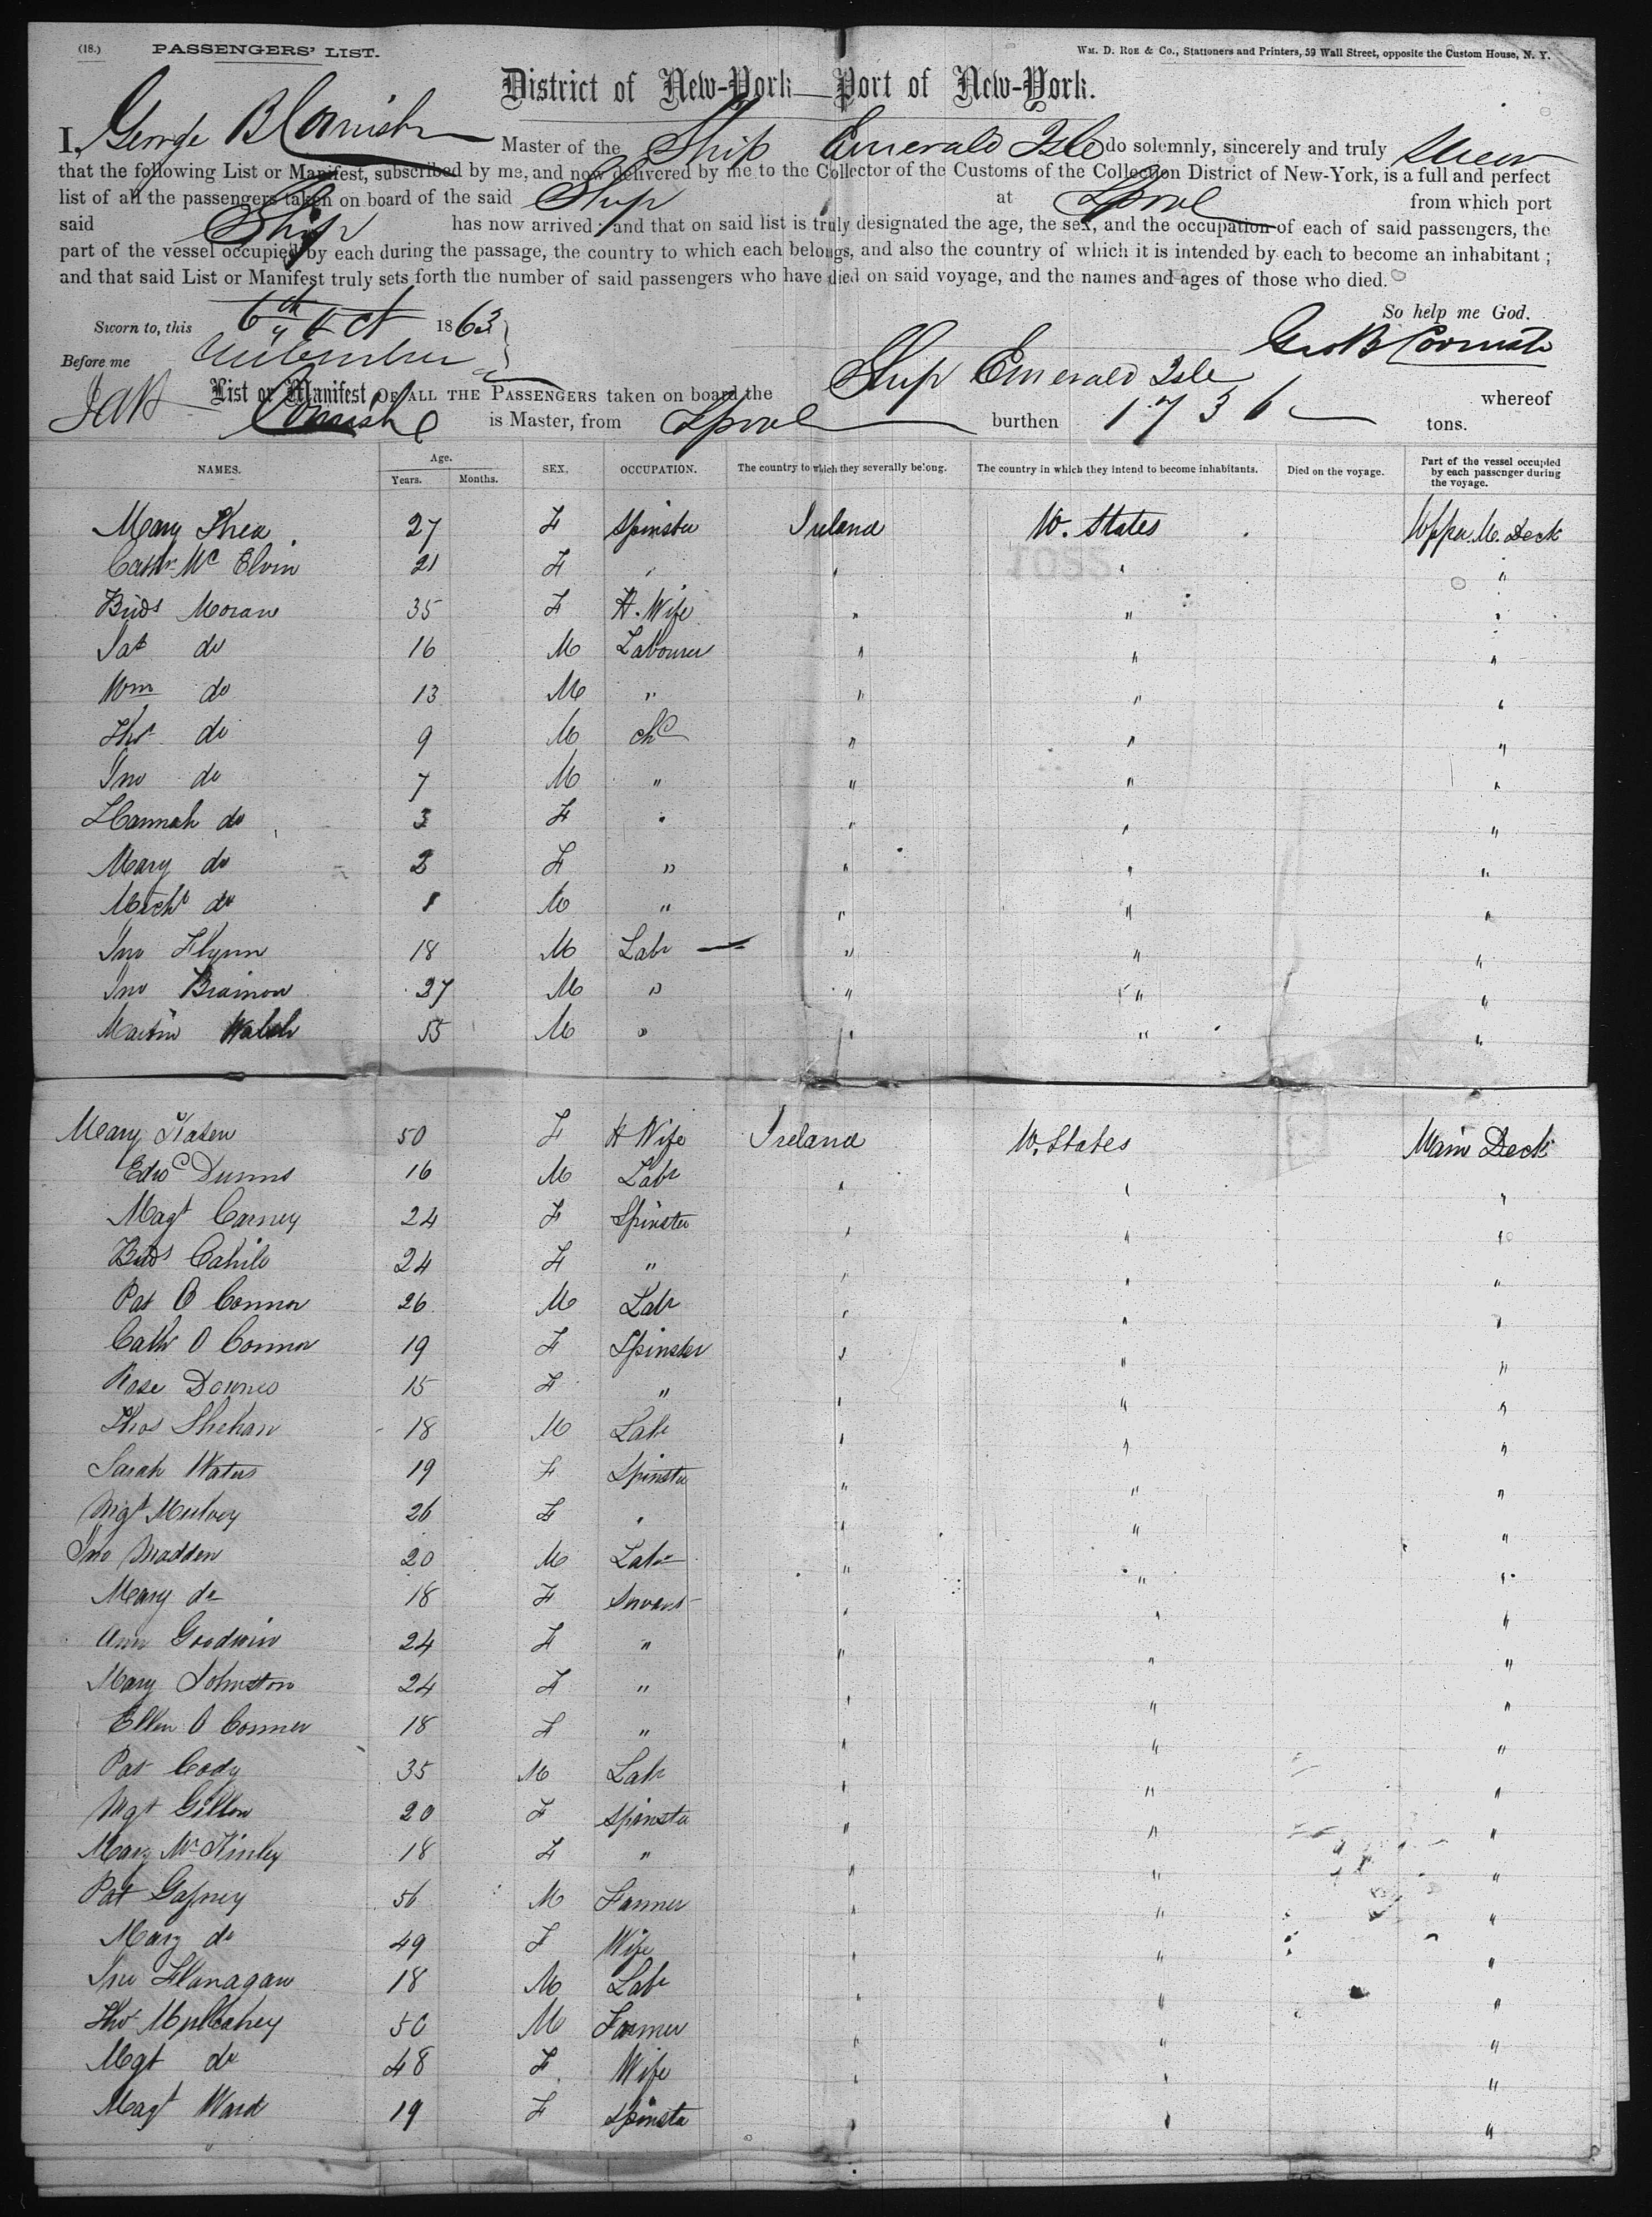 (18.) PASSENGERS' LIST. WM. D. ROE & CO., Stationers and Printers, 59 Wall Street, opposite the Custom House, N. Y.
District of New-York—Port of New-York.
I, George B Cornish Master of the Ship Emerald Isle do solemnly, sincerely and truly swear
that the following List or Manifest, subscribed by me, and now delivered by me to the Collector of the Customs of the Collection District of New-York, is a full and perfect
list of all the passengers taken on board of the said Ship at Lpool from which port
said Ship has now arrived; and that on said list is truly designated the age, the sex, and the occupation of each of said passengers, the
part of the vessel occupied by each during the passage, the country to which each belongs, and also the country of which it is intended by each to become an inhabitant;
and that said List or Manifest truly sets forth the number of said passengers who have died on said voyage, and the names and ages of those who died.
So help me God.
Sworn to, this 6th Oct 1863
Geo B Cornish
Before me
List or Manifest OF ALL THE PASSENGERS taken on board the Ship Emerald Isle whereof
Cornish is Master, from Lpool burthen 1736 tons.
NAMES. Age. Years. Months. SEX. OCCUPATION. The country to which they severally belong. The country in which they intend to become inhabitants. Died on the voyage. Part of the vessel occupied by each passenger during the voyage.
Mary Shea 27 F Spinster Ireland U. States Upper M. Deck
Cathn Mc Elvin 21 F " " " "
Bridt Moran 35 F H. Wife " " "
Pat do 16 M Labourer " " "
Wm do 13 M " " " "
Thos do 9 M chd " " "
Jno do 7 M " " " "
Hannah do 3 F " " " "
Mary do 2 F " " " "
Michl do 1 M " " " "
Jno Flynn 18 M Labr " " "
Jno 27 M " " " "
Martin Walsh 55 M " " " "
Mary 50 F H Wife Ireland U. States Main Deck
Edwd 16 M Labr " " "
Magt Carney 24 F Spinster " " "
Bridt Cahill 24 F " " " "
Pat O Connor 26 M Labr " " "
Cath O Connor 19 F Spinster " " "
Rose Downes 15 F " " " "
Thos Shehan 18 M Labr " " "
Sarah Waters 19 F Spinster " " "
Mgt Mulvey 26 F " " " "
Jno Madden 20 M Labr " " "
Mary do 18 F Servant " " "
Ann Goodwin 24 F " " " "
Mary Johnston 24 F " " " "
Ellen O Conner 18 F " " " "
Pat Cody 35 M Labr " " "
Mgt Gillon 20 F Spinster " " "
Mary Mc Kinley 18 F " " " "
Pat Gafney 56 M Farmer " " "
Mary do 49 F Wife " " "
Jno Flanagan 18 M Labr " " "
Thos Mulcahey 50 M Farmer " " "
Mgt do 48 F Wife " " "
Magt Ward 19 F Spinster " " "